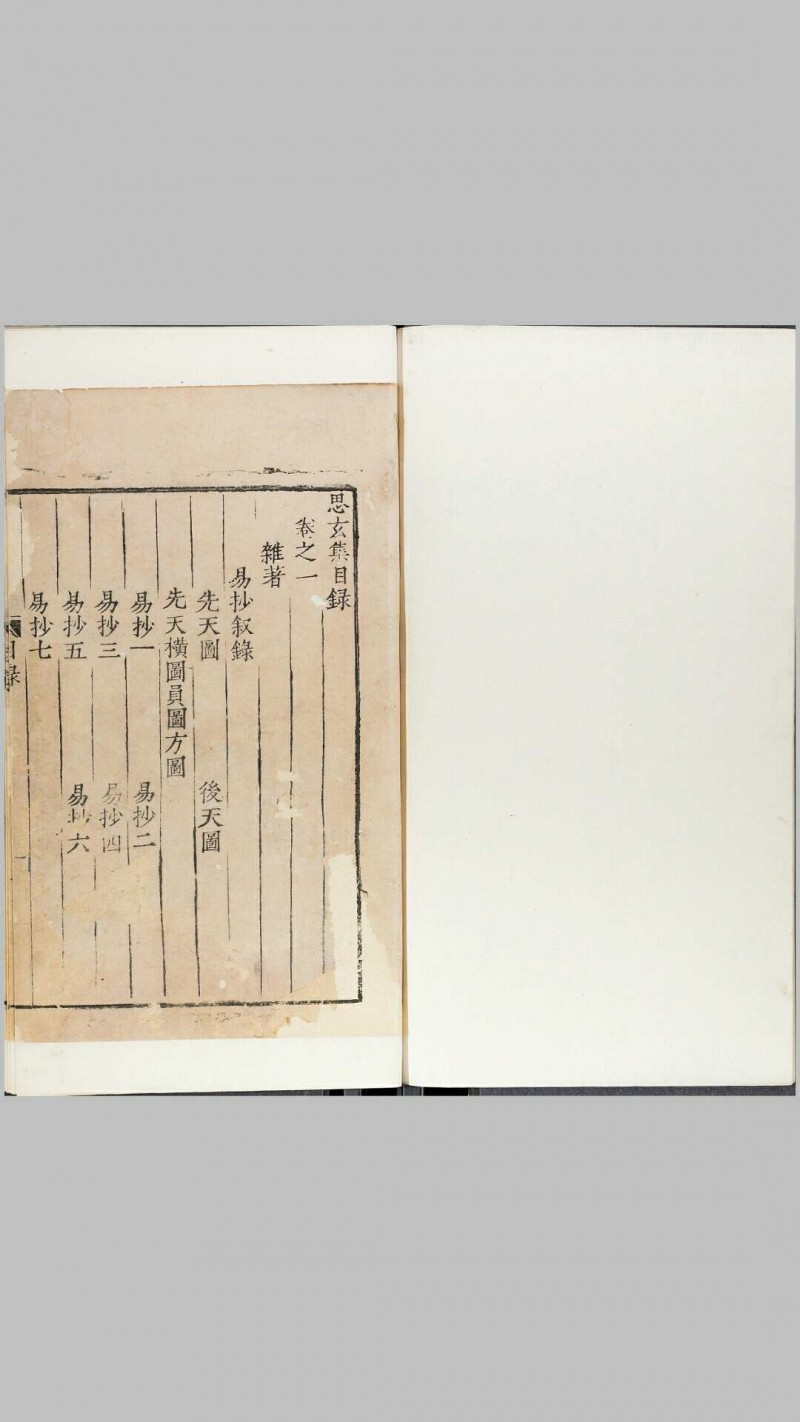 思玄集目録
卷之一
雜著
易抄叙錄
先天圖　後天圖
先天橫圖員圖方圖
易抄一　易抄二
易抄三　易抄四
易抄五　易抄六
易抄七
目録
一